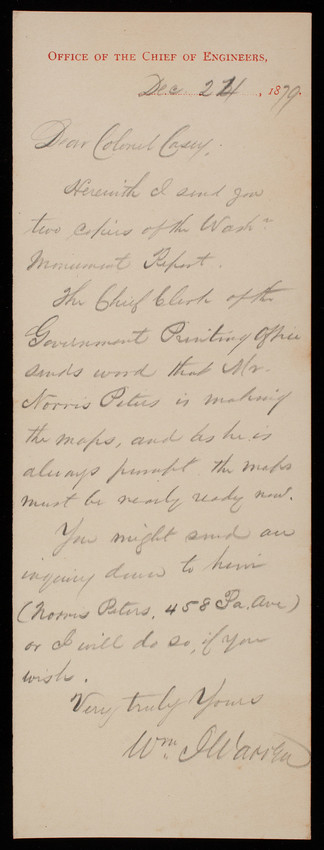 OFFICE OF THE CHIEF OF ENGINEERS,
Dec 24, 1879.
Dear Colonel Casey,
Herewith I send you
two copies of the Washn
Monument Report.
The Chief Clerk of the
Government Printing Office
sends word that Mr.
Norris Peters is making
the maps, and as he is
always prompt the maps
must be nearly ready now.
You might send an
inquiry down to him
(Norris Peters, 458 Pa. Ave)
or I will do so, if you
wish.
Very truly Yours
Wm J Warren